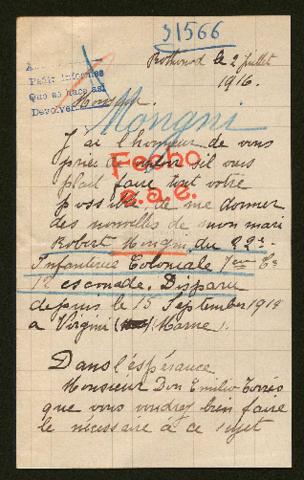 31566
Rothonod le 2 juillet
1916.
Pedir informes
Que se hace asi
Devolver
Monsieur
Mongni
J'ai l'honneur de vous
prier de vouloir s'il vous
plait faire tout votre
possible de me donner
des nouvelles de mon mari
Robert Mongni du 22e
Infanterie Coloniale 7eme Cie
12 escouade. Disparu
depuis le 15 Septembre 1914
a Virgini (Marne).
Fecho
e.s.e.
Dans l'éspérance
Monsieur Don Emilio Torrés
que vous voudrez bien faire
le nécessaire à ce sujet